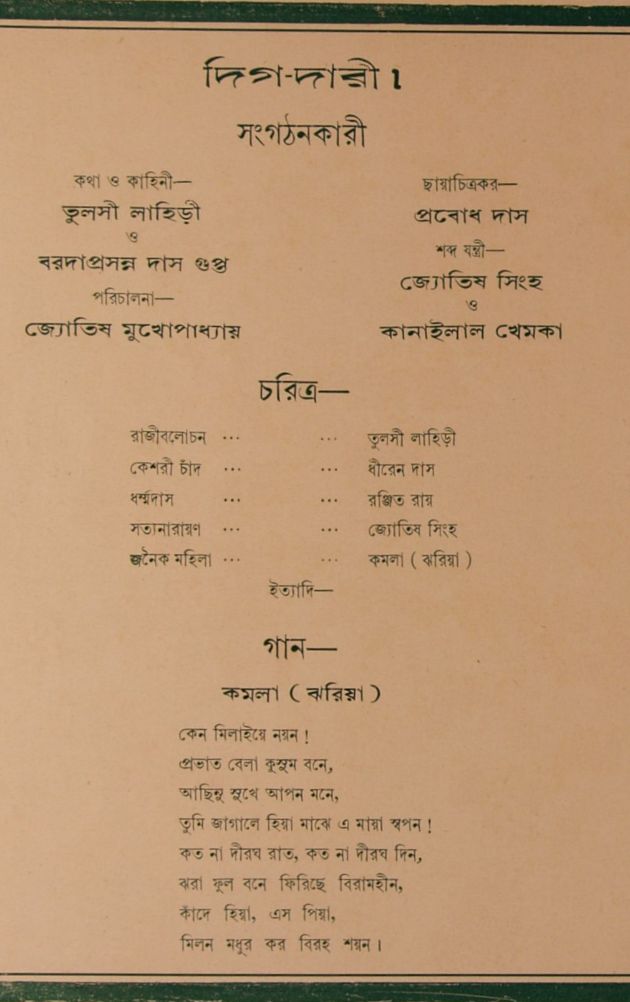 দিগ-দারী।
সংগঠনকারী
কথা ও কাহিনী—
তুলসী লাহিড়ী
ও
বরদাপ্রসন্ন দাস গুপ্ত
পরিচালনা—
জ্যোতিষ মুখোপাধ্যায়
ছায়াচিত্রকর—
প্রবোধ দাস
শব্দ যন্ত্রী—
জ্যোতিষ সিংহ
ও
কানাইলাল খেমকা
চরিত্র—
রাজীবলোচন ... ... তুলসী লাহিড়ী
কেশরী চাঁদ ... ... ধীরেন দাস
ধর্ম্মদাস ... ... রঞ্জিত রায়
সত্যনারায়ণ ... ... জ্যোতিষ সিংহ
জনৈক মহিলা ... ... কমলা ( ঝরিয়া )
ইত্যাদি—
গান—
কমলা ( ঝরিয়া )
কেন মিলাইয়ে নয়ন !
প্রভাত বেলা কুসুম বনে,
আছিনু সুখে আপন মনে,
তুমি জাগালে হিয়া মাঝে এ মায়া স্বপন !
কত না দীরঘ রাত, কত না দীরঘ দিন,
ঝরা ফুল বনে ফিরিছে বিরামহীন,
কাঁদে হিয়া, এস পিয়া,
মিলন মধুর কর বিরহ শয়ন ।